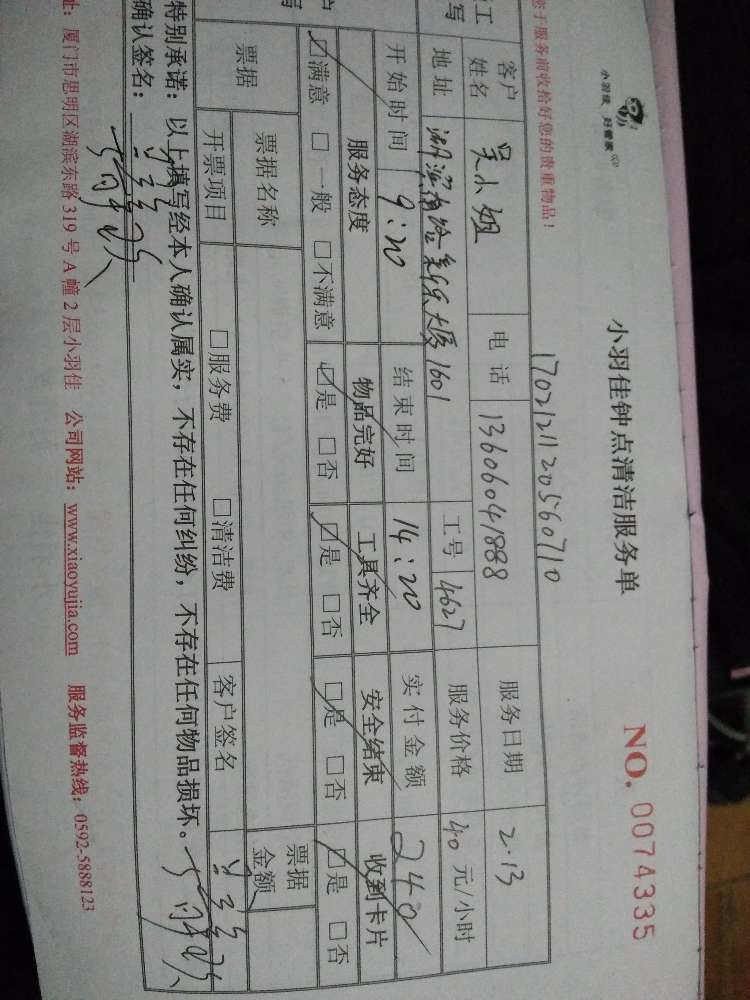 小羽佳 好管家
小羽佳钟点清洁服务单
NO. 0074335
于服务前收拾好您的贵重物品!
1702121120560710
客户姓名 吴小姐 电话 13606041888 服务日期 2.13
地址 湖滨南路 大厦1601 工号 4627 服务价格 40 元/小时
开始时间 9:20 结束时间 14:20 实付金额 240
服务态度 物品完好 工具齐全 安全结束 收到卡片
☑满意 □一般 □不满意 ☑是 □否 ☑是 □否 ☑是 □否 ☑是 □否
票据 票据名称 票据金额
开票项目 □服务费 □清洁费 客户签名
特别承诺：以上填写经本人确认属实，不存在任何纠纷，不存在任何物品损坏。
确认签名：
址：厦门市思明区湖滨东路319号A幢2层小羽佳 公司网站：www.xiaoyujia.com 服务监督热线：0592-5888123